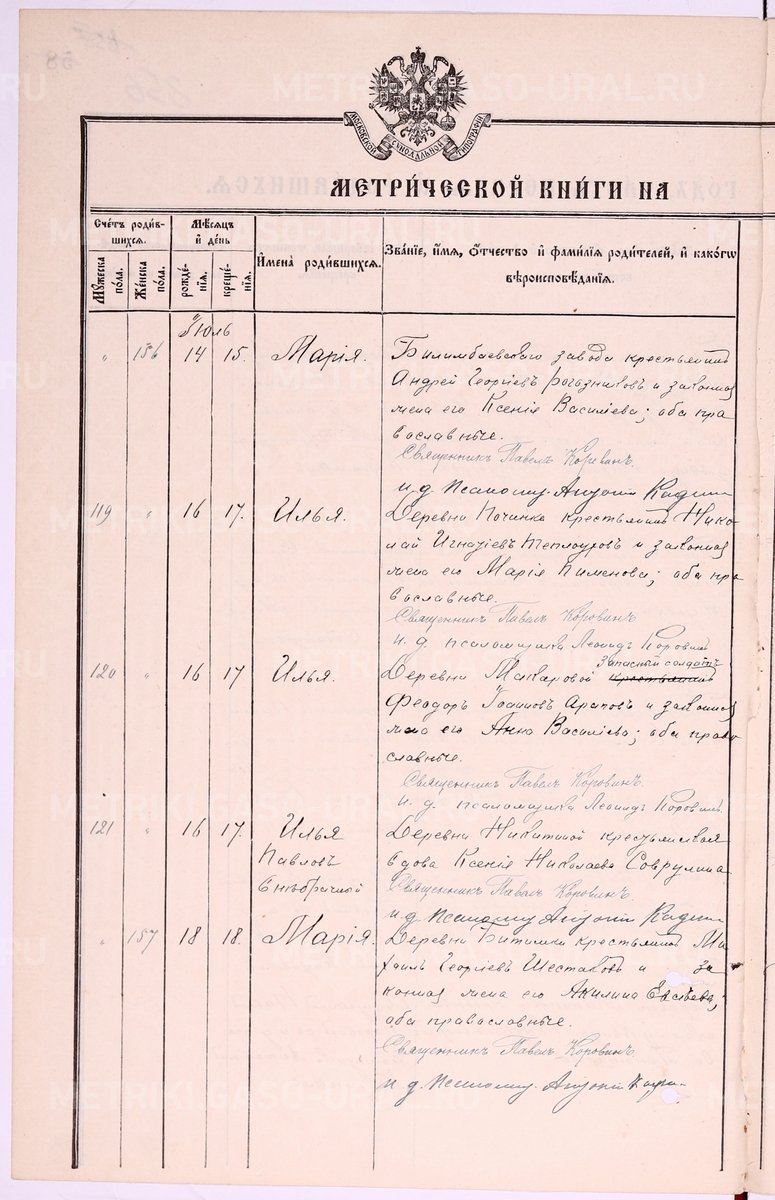 МОСКОВСКОЙ СѴНОДАЛЬНОЙ ТИПОГРАФІИ
МЕТРИ́ЧЕСКОЙ КНИ́ГИ НА
Сче́тъ роди́вшихся.
Мѣ́сяцъ и де́нь
Имена̀ роди́вшихся.
Зва́ніе, и́мя, о́тчество и фами́лія роди́телей, и како́гѡ вѣроисповѣ́данія.
Му́жеска по́ла.
Же́нска по́ла.
рожде́нія.
креще́нія.
Іюль
" 156 14 15. Марія. Билимбаевскаго завода крестьянинъ
Андрей Георгіевъ Рогозниковъ и законная
жена его Ксенія Василіева; оба пра
вославные.
Священникъ Павелъ Коровинъ.
и. д. псаломщ. Андрей
119 " 16 17. Илья. Деревни Починка крестьянинъ Нико
лай Игнатіевъ Теплоуховъ и законная
жена его Марія Пименова; оба пра
вославные.
Священникъ Павелъ Коровинъ
и. д. псаломщика Леонидъ Коровинъ
120 " 16 17 Илья. Деревни Макаровой крестьянинъ запасный солдатъ
Феодоръ Іоанновъ Араповъ и законная
жена его Анна Василіева; оба право
славные.
Священникъ Павелъ Коровинъ.
и. д. псаломщика Леонидъ Коровинъ.
121 " 16 17. Илья Деревни Никитиной крестьянская
Павловъ вдова Ксенія Николаева Соврулина
внѣбрачный Священникъ Павелъ Коровинъ.
и. д. псаломщ.
" 157 18 18. Марія. Деревни Битимки крестьянинъ Ми
хаилъ Георгіевъ Шестаковъ и за
конная жена его Акилина Евсѣева;
оба православные.
Священникъ Павелъ Коровинъ
и. д. псаломщ.
METRIKI.GASO-URAL.RU